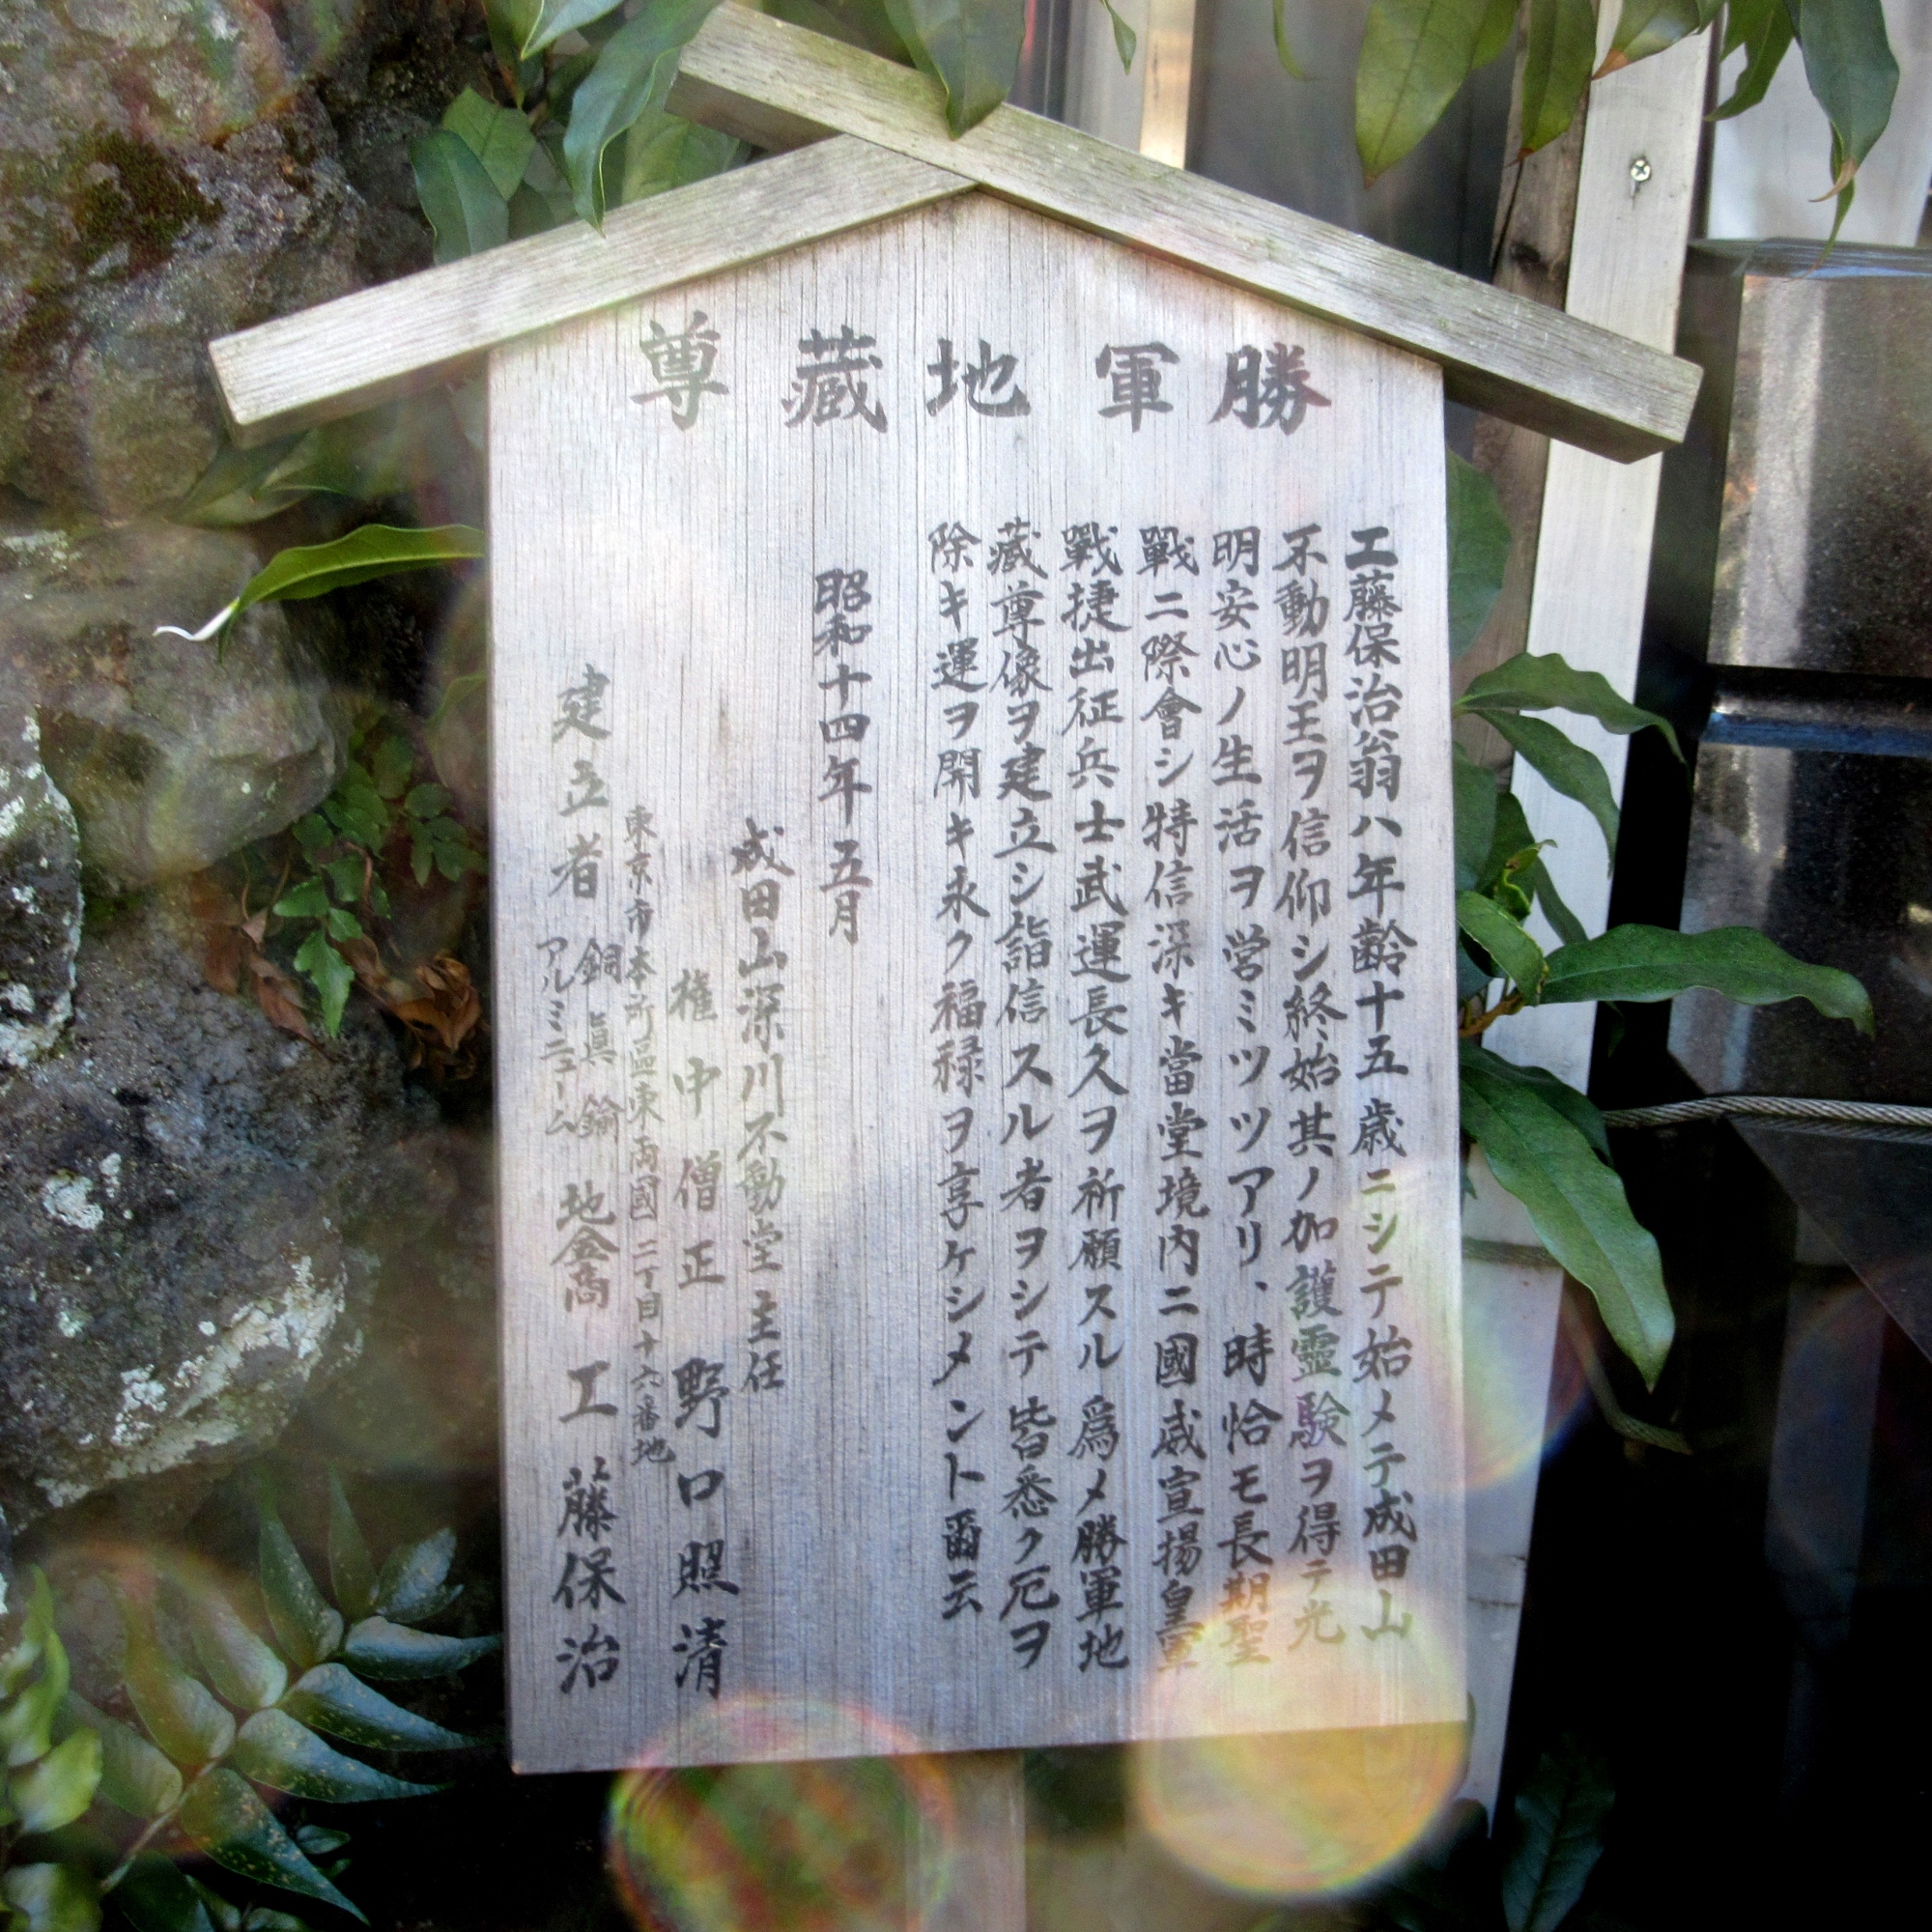 勝軍地蔵尊
工藤保治翁ハ年齢十五歳ニシテ始メテ成田山
不動明王ヲ信仰シ終始其ノ加護霊験ヲ得テ光
明安心ノ生活ヲ営ミツツアリ、時恰モ長期聖
戰ニ際會シ特信深キ當堂境内ニ國威宣揚皇軍
戰捷出征兵士武運長久ヲ祈願スル爲メ勝軍地
蔵尊像ヲ建立シ詣信スル者ヲシテ皆悉ク厄ヲ
除キ運ヲ開キ永ク福禄ヲ享ケシメント爾云
昭和十四年五月
成田山深川不動堂主任
権中僧正 野口照清
東京市本所區東両國二丁目十六番地
建立者 銅真鍮アルミニューム 地金商 工藤保治